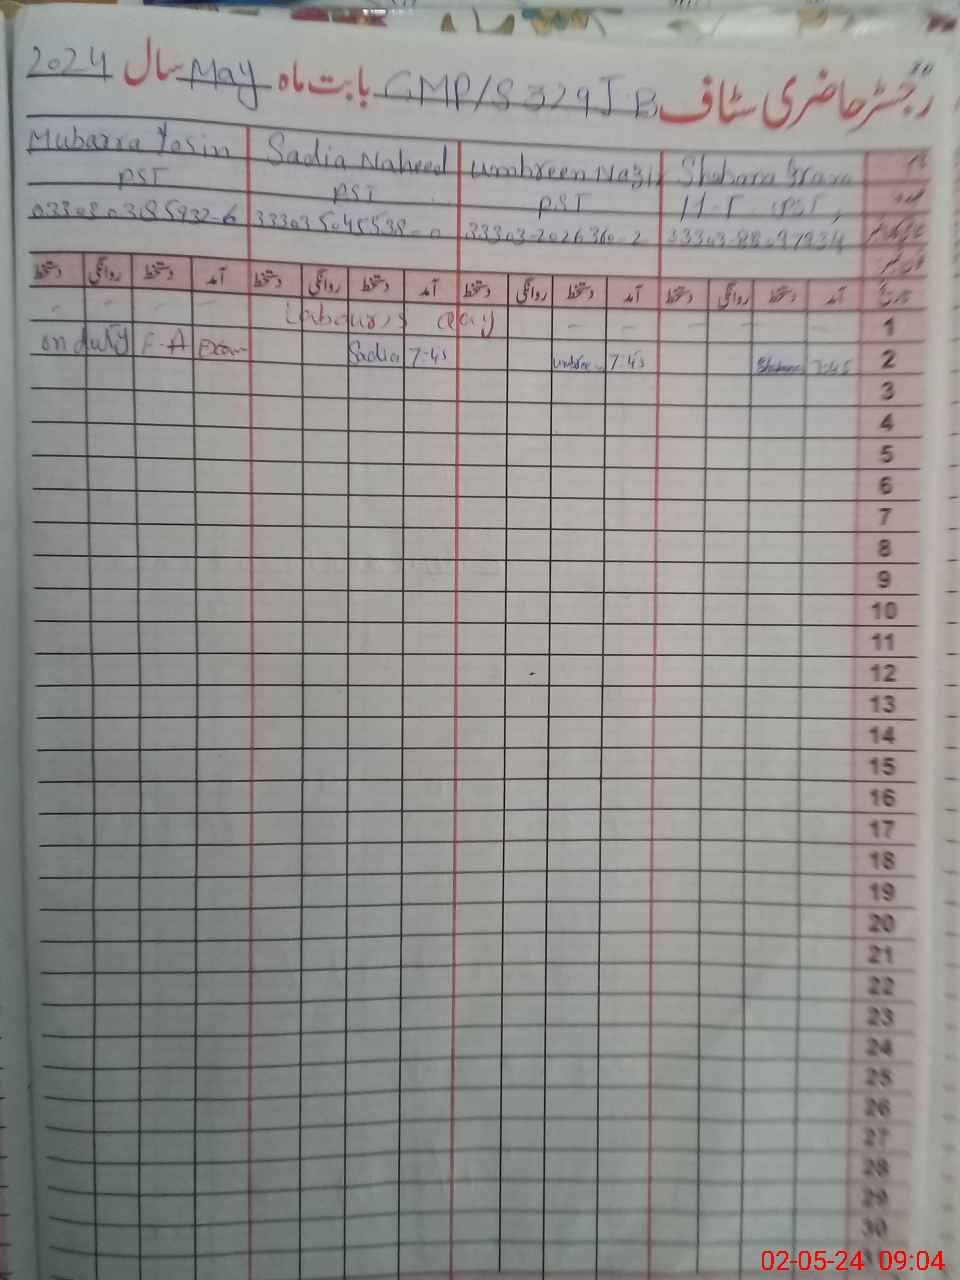 رجسٹر حاضری سٹاف GMP/S 329 J.B بابت ماہ May سال 2024
Shabana Umbreen Nazi Sadia Naheed Mubarra Yasin
H-T (PST) PST PST PST
33303-2026360-2
آمد دستخط روانگی دستخط آمد دستخط روانگی دستخط آمد دستخط روانگی دستخط آمد دستخط روانگی دستخط
1 Labour,s day
2 7:45 Shabana 7:45 7:45 Sadia on duty F-A Exam
3
4
5
6
7
8
9
10
11
12
13
14
15
16
17
18
19
20
21
22
23
24
25
26
27
28
29
30
02-05-24 09:04